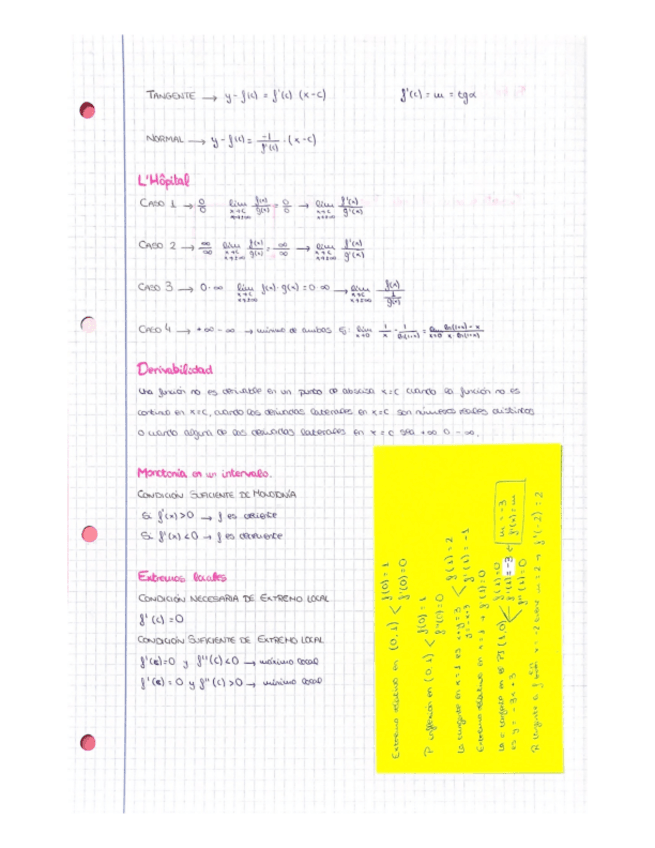 TANGENTE → y - f(c) = f'(c) (x-c) f'(c) = m = tgα
NORMAL → y - f(c) = -1/f'(c) · (x-c)
L'Hôpital
CASO 1 → 0/0 lim x→c x→±∞ f(x)/g(x) = 0/0 → lim x→c x→±∞ f'(x)/g'(x)
CASO 2 → ∞/∞ lim x→c x→±∞ f(x)/g(x) = ∞/∞ → lim x→c x→±∞ f'(x)/g'(x)
CASO 3 → 0·∞ lim x→c x→±∞ f(x)·g(x) = 0·∞ → lim x→c x→±∞ f(x)/(1/g(x))
CASO 4 → +∞ - ∞ → mínimo de ambos lim x→0 1/x - 1/ln(1+x) = lim x→0 ln(1+x) - x / x·ln(1+x)
Derivabilidad
Una función no es derivable en un punto de abscisa x=c cuando la función no es
continua en x=c, cuando las derivadas laterales en x=c son números reales distintos
o cuando alguna de las derivadas laterales en x=c sea +∞ o -∞.
Monotonía en un intervalo.
CONDICIÓN SUFICIENTE DE MONOTONÍA
Si f'(x) > 0 → f es creciente
Si f'(x) < 0 → f es decreciente
Extremos locales
CONDICIÓN NECESARIA DE EXTREMO LOCAL
f'(c) = 0
CONDICIÓN SUFICIENTE DE EXTREMO LOCAL
f'(c) = 0 y f''(c) < 0 → máximo local
f'(c) = 0 y f''(c) > 0 → mínimo local
Extremo relativo en (0,1) < f(0) = 1 f'(0) = 0
P inflexión en (0,1) < f(0) = 1 f''(0) = 0
La tangente en x=1 es x+y=3 y=-x+3 < f(1) = 2 f'(1) = -1
Extremo relativo en x=1 → f'(1) = 0
La recta tangente en el PI (1,0) < f(1) = 0 f'(1) = -3 f''(1) = 0 m = -3 f'(x) = m
es y = -3x+3
x = -2 m = 2 → f'(-2) = 2